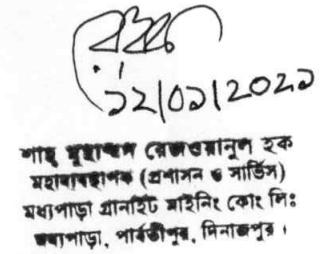 ১২/০১/২০২১
শাহ্ মুহাম্মদ রেজওয়ানুল হক
মহাব্যবস্থাপক (প্রশাসন ও সার্ভিস)
মধ্যপাড়া গ্রানাইট মাইনিং কোং লিঃ
মধ্যপাড়া, পার্বতীপুর, দিনাজপুর।